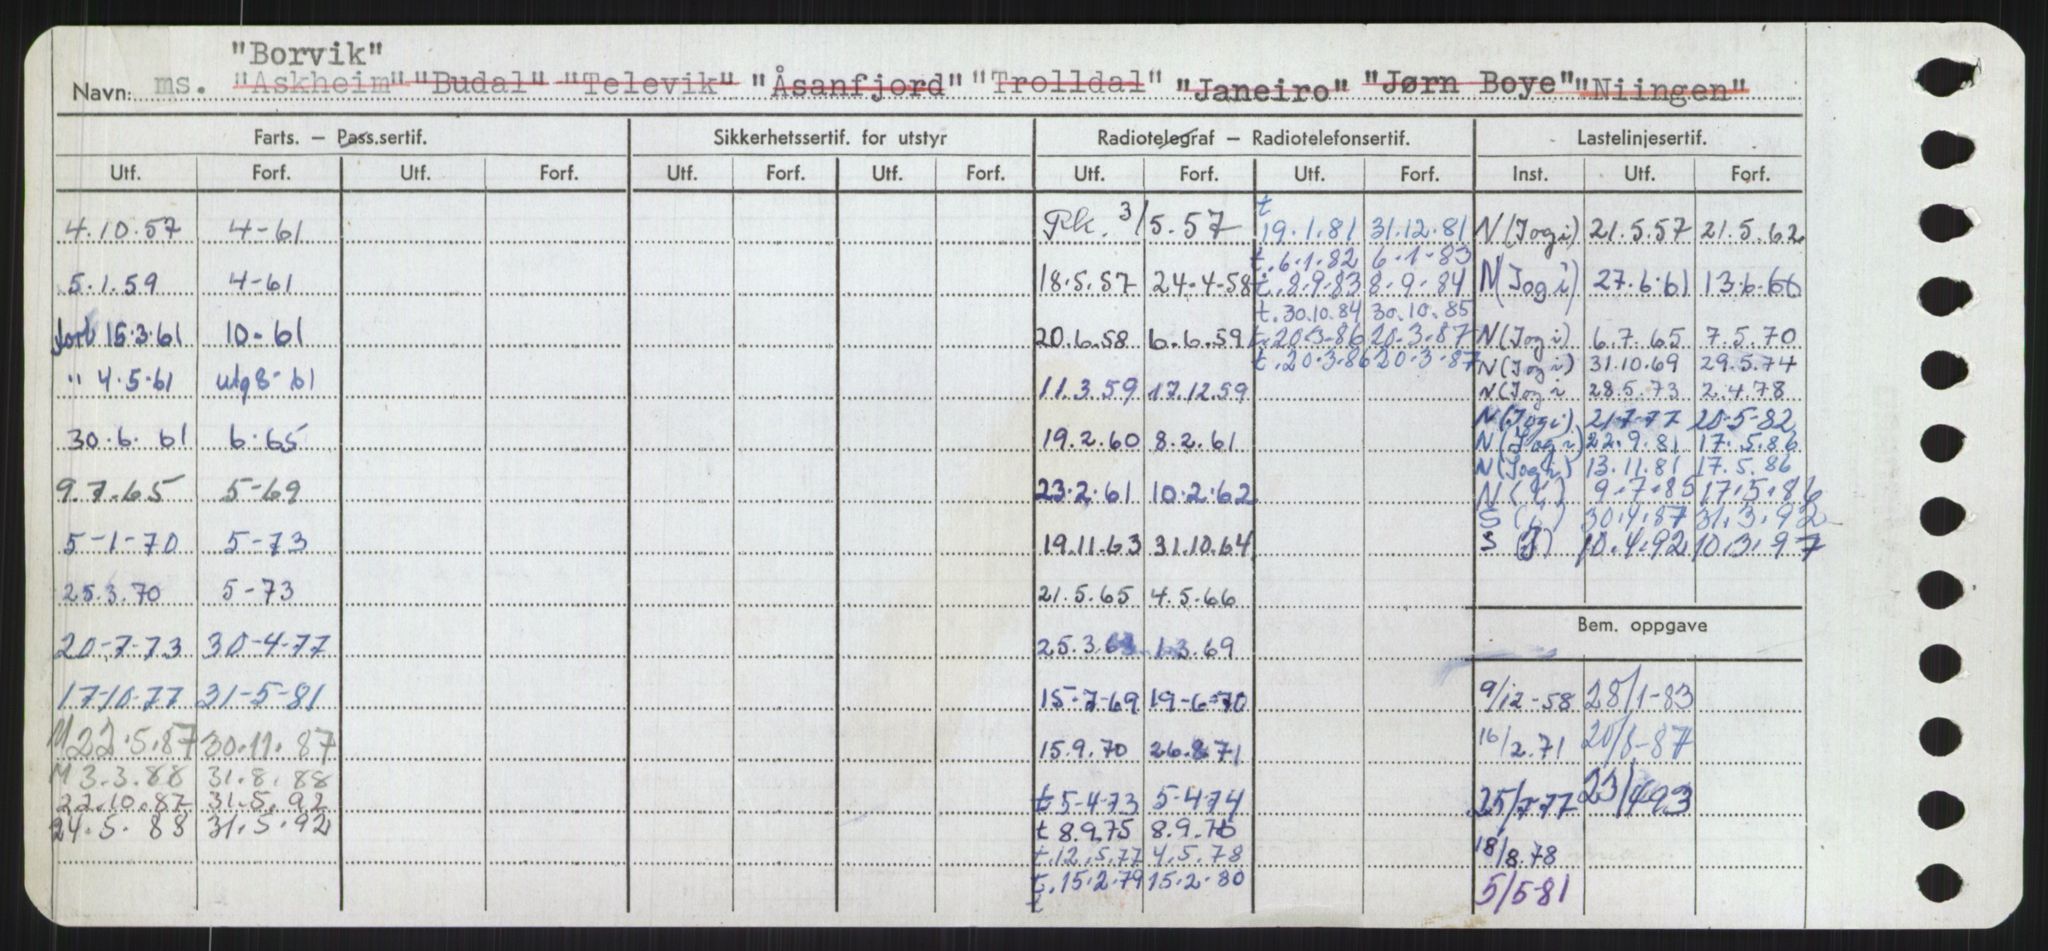 "Borvik"
Navn: ms. "Askheim" "Budal" "Televik" "Åsanfjord" "Trolldal" "Janeiro" "Jørn Boye" "Niingen"
Farts. — Pass.sertif. Sikkerhetssertif. for utstyr Radiotelegraf — Radiotelefonsertif. Lastelinjesertif.
Utf. Forf. Utf. Forf. Utf. Forf. Utf. Forf. Utf. Forf. Utf. Forf. Inst. Utf. Forf.
4.10.57 4-61
5.1.59 4-61
forl 15.3.61 10-61
" 4.5.61 utg 8-61
30.6.61 6.65
9.7.65 5-69
5-1-70 5-73
25.3.70 5-73
20-7-73 30-4-77
17-10-77 31-5-81
M 22.5.87 30.11.87
M 3.3.88 31.8.88
22.10.87 31.5.92
24.5.88 31.5.92
3/5.57
18.5.57 24-4-58
20.6.58 6.6.59
11.3.59 17.12.59
19.2.60 8.2.61
23.2.61 10.2.62
19.11.63 31.10.64
21.5.65 4.5.66
25.3.68 1.3.69
15-7-69 19-6-70
15.9.70 26.8.71
t 5-4-73 5-4-74
t 8.9.75 8.9.76
t.12.5.77 4.5.78
t.15.2.79 15.2.80
t
t
19.1.81 31.12.81
t.6.1.82 6-1-83
t.8.9.83 8-9-84
t.30.10.84 30.10.85
t.20.3.86 20.3.87
t.20.3.86 20.3.87
N (Jogi) 21.5.57 21.5.62
N (Jogi) 27.6.61 13.6.66
N (Jogi) 6.7.65 7.5.70
N (Jogi) 31.10.69 29.5.74
N (Jogi 28.5.73 2.4.78
N (Jogi) 21-7-77 20-5-82
N (Jogi) 22.9.81 17.5.86
N (Jogi) 13.11.81 17.5.86
N ( ) 9.7.85 17.5.86
S ( ) 30.4.87 31.3.92
S (J) 10.4.92 10.3.97
Bem. oppgave
9/12-58 28/1-83
16/2.71 20/8-87
25/7-77 23/4-93
18/8.78
5/5-81